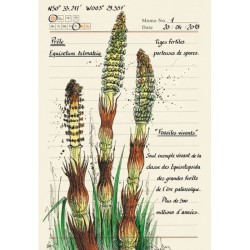 N50° 33.711' W003° 29.351'
Memo No. 1
Date 20/04/2018
Prêle
Equisetum telmateia
Tiges fertiles
porteuses de spores.
"Fossiles vivants"
Seul exemple vivant de la
classe des Equisetopsida
des grandes forêts
de l'ère paléozoïque.
Plus de 300
millions d'années.